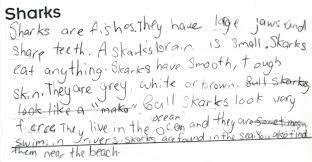 Sharks
Sharks are fishes. They have lage jaws and
sharp teeth. A sharks brain is small. Sharks
eat anything. Sharks have smooth, tough
skin. They are grey, white or brown. Bull sharks
look like a "mako" Bull sharks look very
ocean
They live in the and they are
swim in rivers. Sharks are found in the sea You also find
them near the beach.